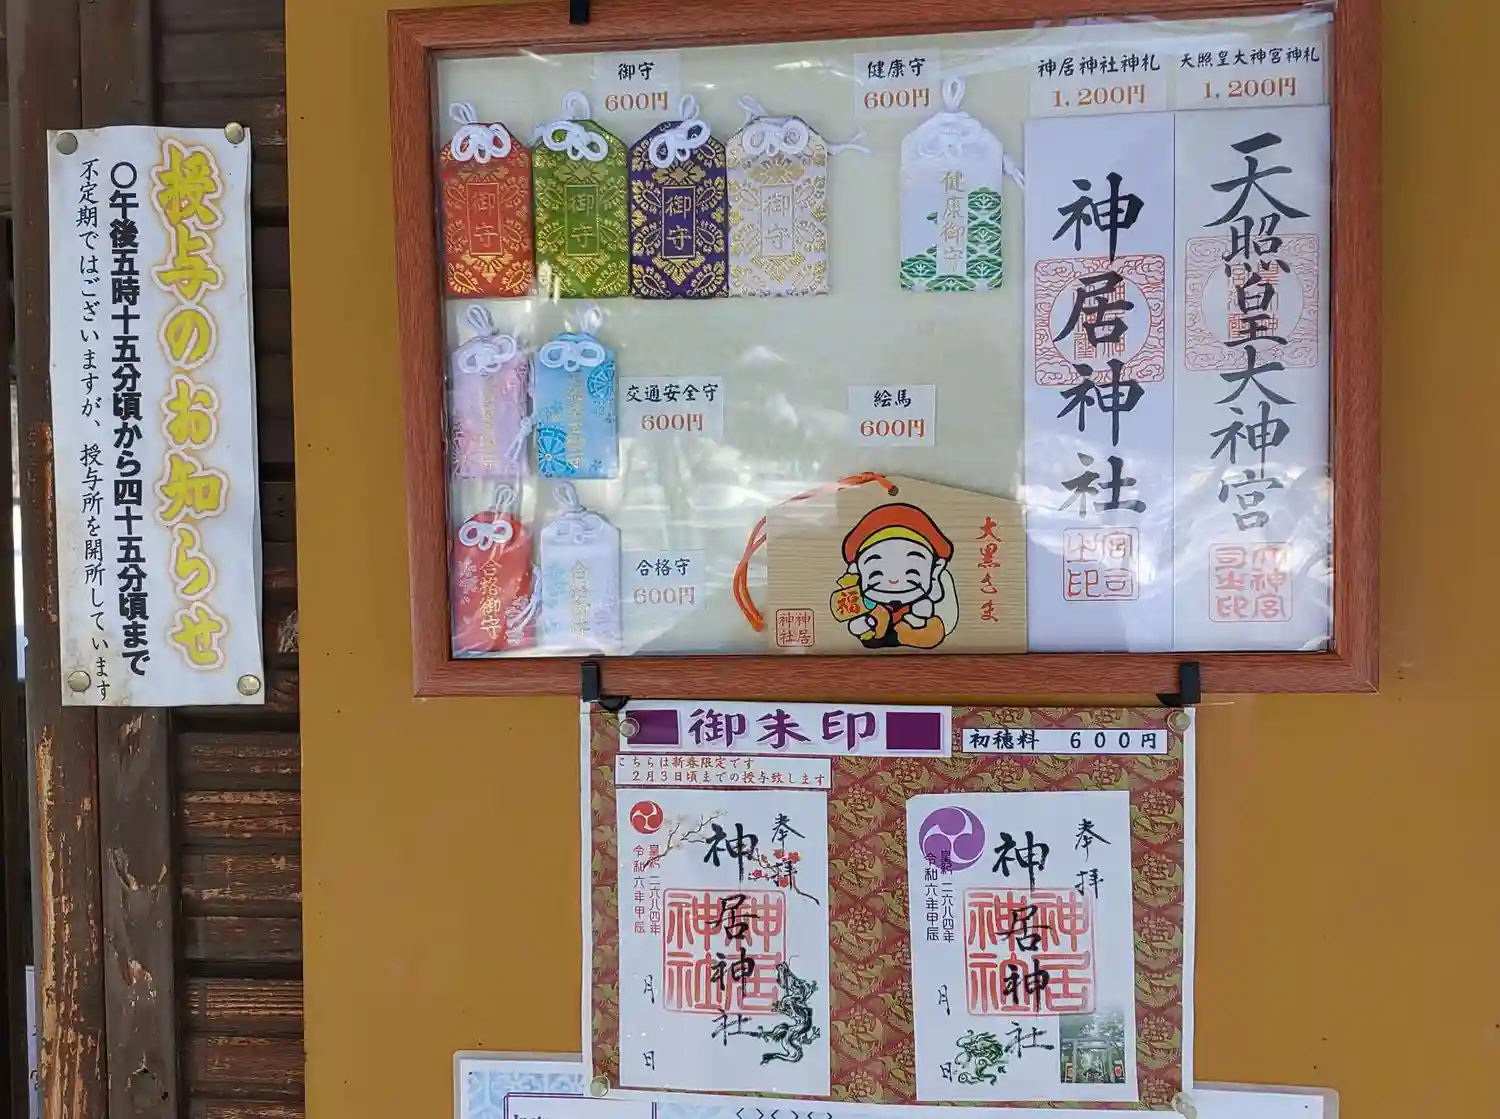 授与のお知らせ
〇午後五時十五分頃から四十五分頃まで
不定期ではございますが、授与所を開所しています
御守
600円
健康守
600円
神居神社神札
1,200円
天照皇大神宮神札
1,200円
御守
御守
御守
御守
健康御守
神居神社
天照皇大神宮
交通安全守
600円
絵馬
600円
合格守
600円
合格御守
合格御守
大黒さま
福
神居
神社
宮司
之印
大神宮
司之印
御朱印
初穂料 600円
こちらは新春限定です
2月3日頃までの授与致します
奉拝
神居神社
神居
神社
皇紀二六八四年
令和六年甲辰
月
日
奉拝
神居神社
神居
神社
皇紀二六八四年
令和六年甲辰
月
日